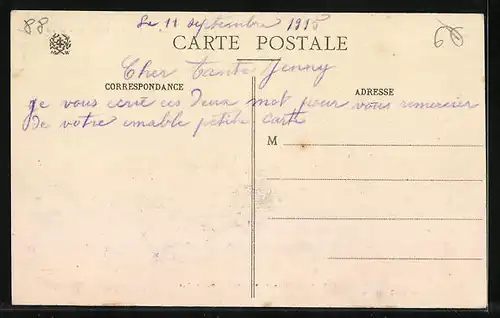 88
Le 11 septembre 1915
60
CARTE POSTALE
Cher Tante Jenny
CORRESPONDANCE
ADRESSE
je vous ecrie ces deux mot pour vous remercier
de votre emable petite carte
M